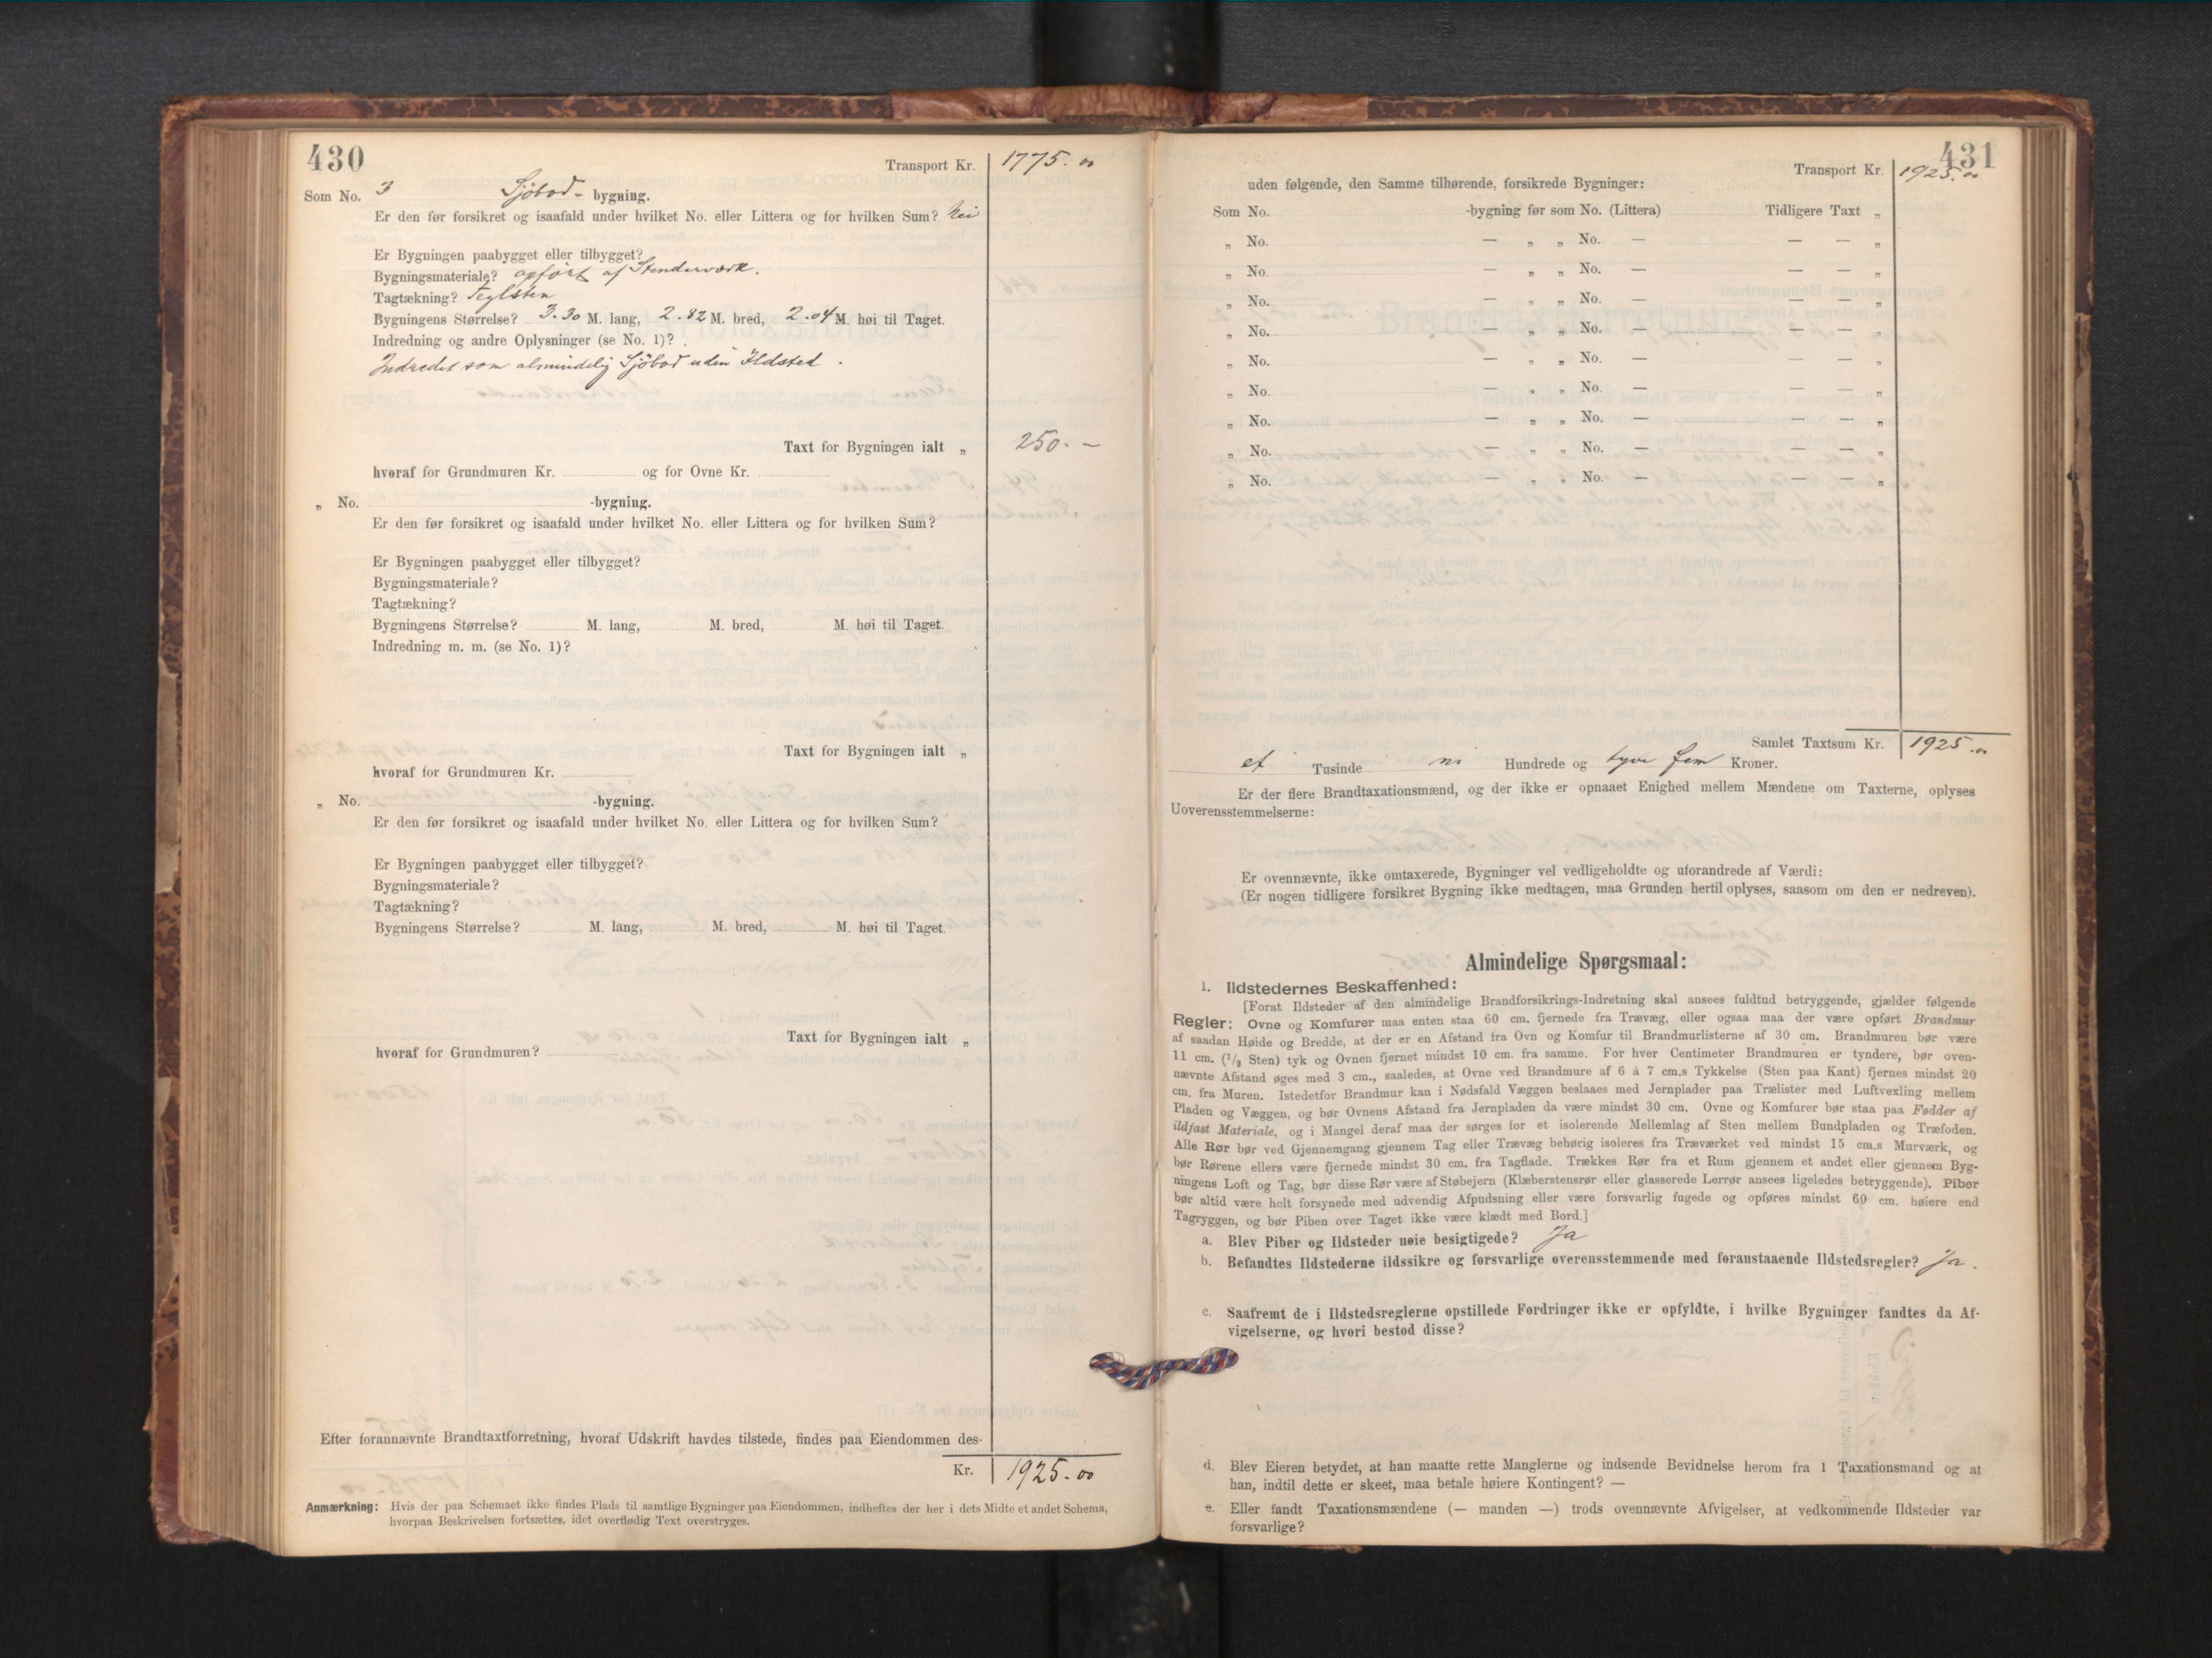 430
Transport Kr. 1775.00
Som No. 3 Sjöbod- bygning.
Er den før forsikret og isaafald under hvilket No. eller Littera og for hvilken Sum? Nei
Er Bygningen paabygget eller tilbygget?
Bygningsmateriale? opført af Stenderværk.
Tagtækning? Teglsten
Bygningens Størrelse? 3.30 M. lang, 2.82 M. bred, 2.04 M. høi til Taget.
Indredning og andre Oplysninger (se No. 1)?
Indredet som almindelig Sjöbod uden Ildsted.
Taxt for Bygningen ialt „ 250.-
hvoraf for Grundmuren Kr. og for Ovne Kr.
„ No. -bygning.
Er den før forsikret og isaafald under hvilket No. eller Littera og for hvilken Sum?
Er Bygningen paabygget eller tilbygget?
Bygningsmateriale?
Tagtækning?
Bygningens Størrelse? M. lang, M. bred, M. høi til Taget.
Indredning m. m. (se No. 1)?
Taxt for Bygningen ialt „
hvoraf for Grundmuren Kr.
„ No. -bygning.
Er den før forsikret og isaafald under hvilket No. eller Littera og for hvilken Sum?
Er Bygningen paabygget eller tilbygget?
Bygningsmateriale?
Tagtækning?
Bygningens Størrelse? M. lang, M. bred, M. høi til Taget.
Taxt for Bygningen ialt „
hvoraf for Grundmuren?
Efter forannævnte Brandtaxtforretning, hvoraf Udskrift havdes tilstede, findes paa Eiendommen des-
Kr. 1925.00
Anmærkning: Hvis der paa Schemaet ikke findes Plads til samtlige Bygninger paa Eiendommen, indheftes der her i dets Midte et andet Schema,
hvorpaa Beskrivelsen fortsættes, idet overflødig Text overstryges.
431
Transport Kr. 1925.00
uden følgende, den Samme tilhørende, forsikrede Bygninger:
Som No. -bygning før som No. (Littera) Tidligere Taxt „
„ No. — „ „ No. — — — „
„ No. — „ „ No. — — — „
„ No. — „ „ No. — — — „
„ No. — „ „ No. — — — „
„ No. — „ „ No. — — — „
„ No. — „ „ No. — — — „
„ No. — „ „ No. — — — „
„ No. — „ „ No. — — — „
„ No. — „ „ No. — — — „
Samlet Taxtsum Kr. 1925.00
et Tusinde ni Hundrede og tyve fem Kroner.
Er der flere Brandtaxationsmænd, og der ikke er opnaaet Enighed mellem Mændene om Taxterne, oplyses
Uoverensstemmelserne:
Er ovennævnte, ikke omtaxerede, Bygninger vel vedligeholdte og uforandrede af Værdi:
(Er nogen tidligere forsikret Bygning ikke medtagen, maa Grunden hertil oplyses, saasom om den er nedreven).
Almindelige Spørgsmaal:
1. Ildstedernes Beskaffenhed:
[Forat Ildsteder af den almindelige Brandforsikrings-Indretning skal ansees fuldtud betryggende, gjælder følgende
Regler: Ovne og Komfurer maa enten staa 60 cm. fjernede fra Trævæg, eller ogsaa maa der være opført Brandmur
af saadan Høide og Bredde, at der er en Afstand fra Ovn og Komfur til Brandmurlisterne af 30 cm. Brandmuren bør være
11 cm. (1/2 Sten) tyk og Ovnen fjernet mindst 10 cm. fra samme. For hver Centimeter Brandmuren er tyndere, bør oven-
nævnte Afstand øges med 3 cm., saaledes, at Ovne ved Brandmure af 6 à 7 cm.s Tykkelse (Sten paa Kant) fjernes mindst 20
cm. fra Muren. Istedetfor Brandmur kan i Nødsfald Væggen beslaaes med Jernplader paa Trælister med Luftvexling mellem
Pladen og Væggen, og bør Ovnens Afstand fra Jernpladen da være mindst 30 cm. Ovne og Komfurer bør staa paa Fødder af
ildfast Materiale, og i Mangel deraf maa der sørges for et isolerende Mellemlag af Sten mellem Bundpladen og Træfoden.
Alle Rør bør ved Gjennemgang gjennem Tag eller Trævæg behørig isoleres fra Træværket ved mindst 15 cm.s Murværk, og
bør Rørene ellers være fjernede mindst 30 cm. fra Tagflade. Trækkes Rør fra et Rum gjennem et andet eller gjennem Byg-
ningens Loft og Tag, bør disse Rør være af Støbejern (Klæberstensrør eller glasserede Lerrør ansees ligeledes betryggende). Piber
bør altid være helt forsynede med udvendig Afpudsning eller være forsvarlig fugede og opføres mindst 60 cm. høiere end
Tagryggen, og bør Piben over Taget ikke være klædt med Bord.]
a. Blev Piber og Ildsteder nøie besigtigede? Ja
b. Befandtes Ildstederne ildssikre og forsvarlige overensstemmende med foranstaaende Ildstedsregler? Ja.
c. Saafremt de i Ildstedsreglerne opstillede Fordringer ikke er opfyldte, i hvilke Bygninger fandtes da Af-
vigelserne, og hvori bestod disse?
d. Blev Eieren betydet, at han maatte rette Manglerne og indsende Bevidnelse herom fra 1 Taxationsmand og at
han, indtil dette er skeet, maa betale høiere Kontingent? —
e. Eller fandt Taxationsmændene (— manden —) trods ovennævnte Afvigelser, at vedkommende Ildsteder var
forsvarlige?